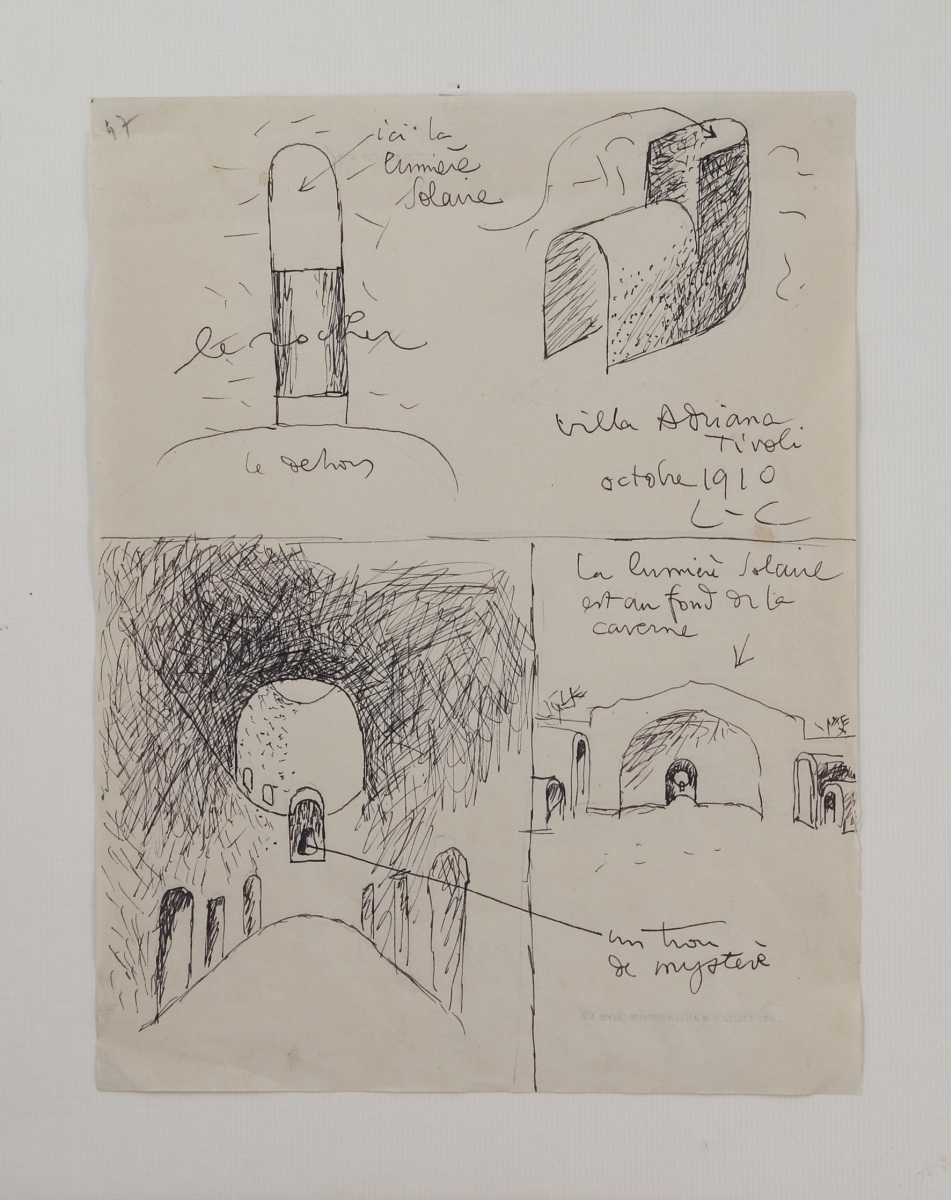 47
ici la
lumière
solaire
le rocher
le dehors
Villa Adriana
Tivoli
octobre 1910
L-C
La lumière solaire
est au fond de la
caverne
un trou
de mystère